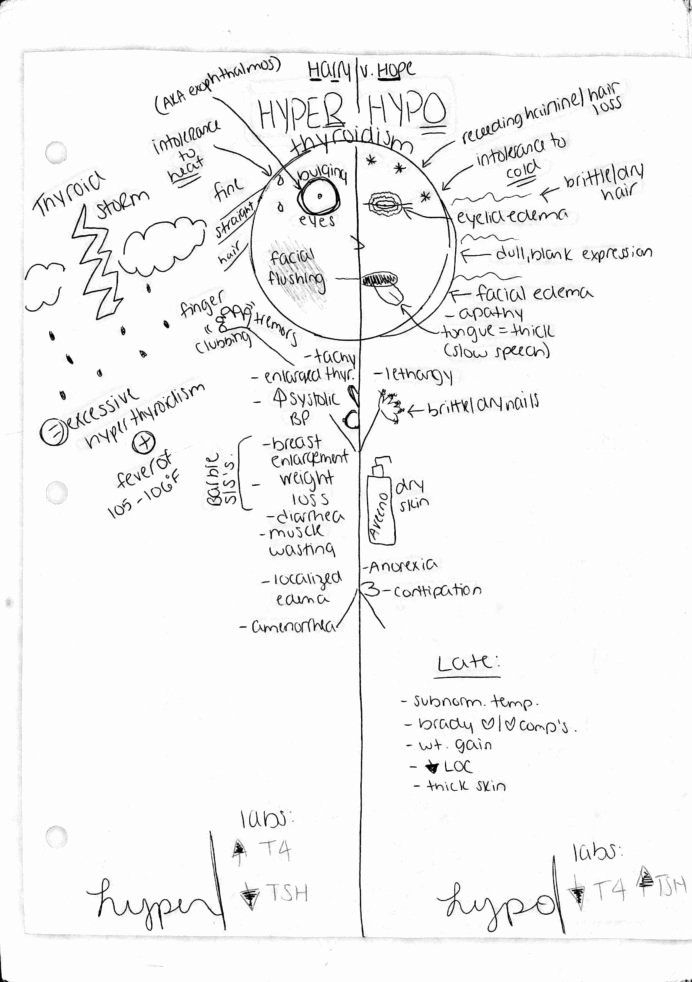 Harry v. Hope
HYPER HYPO
thyroidism
(AKA exophthalmos)
intolerance
to
heat
fine
straight
hair
bulging
eyes
facial
flushing
Thyroid
STORM
= excessive
hyperthyroidism
+
fever of
105-106°F
finger
clubbing
tremors
- tachy
- enlarged thyr.
- ↑ systolic
BP
Barbie
S/S's:
- breast
enlargement
- weight
loss
- diarrhea
- muscle
wasting
- localized
edema
- amenorrhea
receeding hairline/hair
loss
intolerance to
cold
brittle/dry
hair
eyelid edema
dull, blank expression
facial edema
- apathy
tongue = thick
(slow speech)
- lethargy
brittle/dry nails
Aveeno
dry
skin
- Anorexia
- contipation
Late:
- subnorm. temp.
- brady ♡/♡ comp's.
- wt. gain
- ↓ LOC
- thick skin
hyper
labs:
↑ T4
↓ TSH
hypo
labs:
↓ T4 ↑ TSH